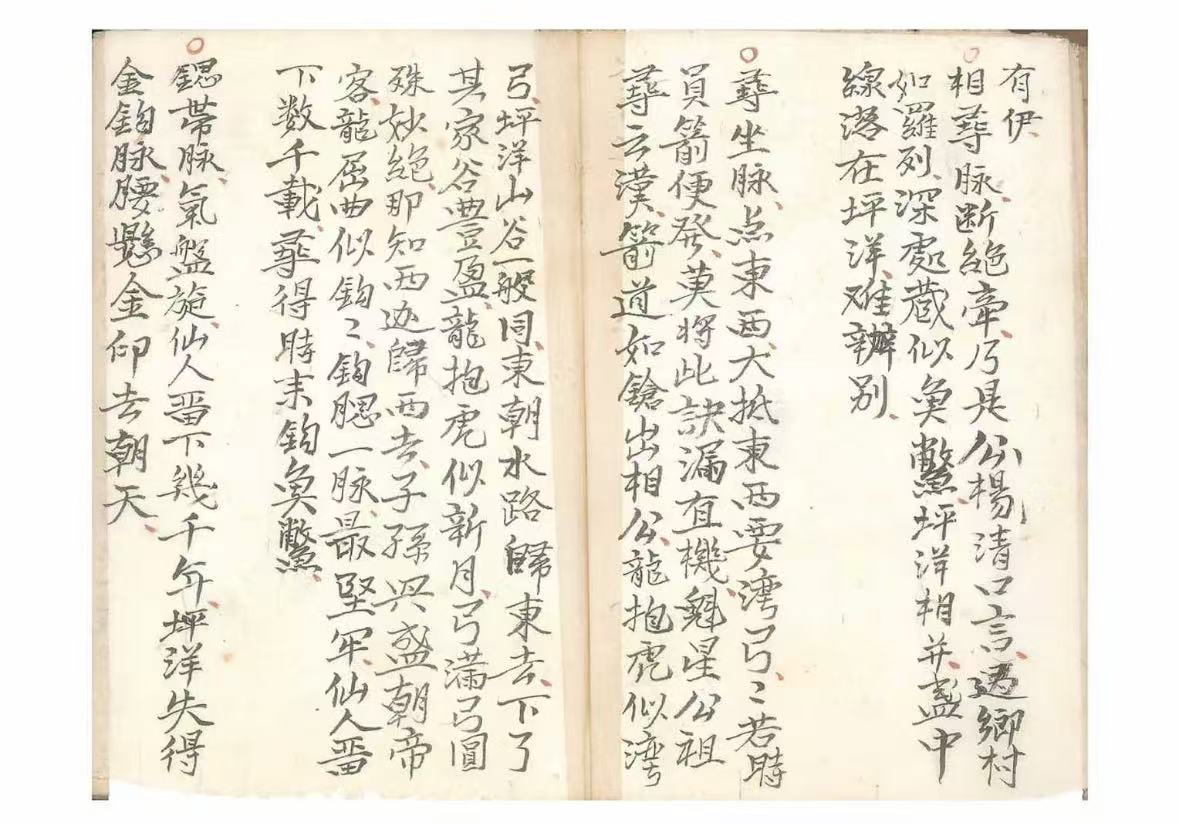 有伊
相尋脉、断絶牽、乃是公楊清口言、遇鄉村
如羅列、深處藏似魚鱉、坪洋相并盞中
線、落在坪洋、难辦别、
尋坐脉、点東西、大抵東西要湾弓、〻若時
員箭便発、莫将此訣漏百機、魁星公祖
尋云漢、箭道如鎗出相公、龍抱虎似湾
弓、坪洋山谷一般同、東朝水路歸東去、下了
其家谷豊盈、龍抱虎似新月、弓滿弓圓
殊妙絶、那知西边歸西去、子孫兴盛朝帝
客、龍屈曲似鈎〻、鈎腮一脉、最堅牢、仙人畨
下数千載、尋得時来鈎魚鱉、
鍶帶脉、氣盤旋、仙人畨下幾千年、坪洋失得
金鈎脉、腰懸金印去朝天、